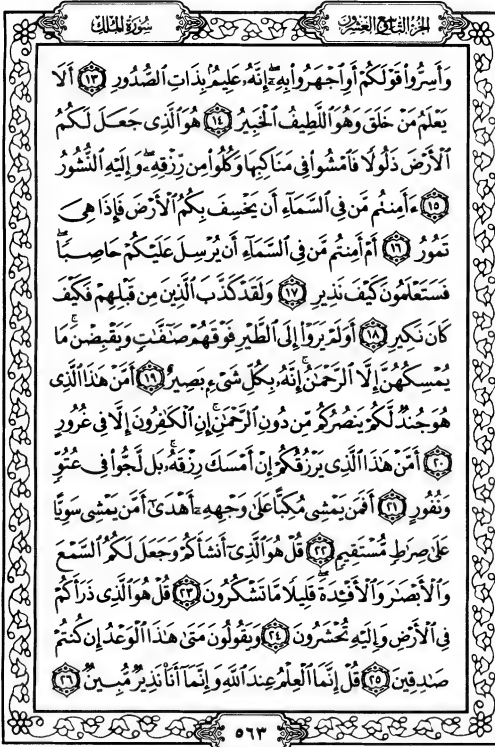 سُورَةُ المُلْكِ
الجُزْءُ التَّاسِعُ وَالعِشْرُونَ
وَأَسِرُّوا۟ قَوْلَكُمْ أَوِ ٱجْهَرُوا۟ بِهِۦٓ إِنَّهُۥ عَلِيمُۢ بِذَاتِ ٱلصُّدُورِ ١٣ أَلَا
يَعْلَمُ مَنْ خَلَقَ وَهُوَ ٱللَّطِيفُ ٱلْخَبِيرُ ١٤ هُوَ ٱلَّذِى جَعَلَ لَكُمُ
ٱلْأَرْضَ ذَلُولًا فَٱمْشُوا۟ فِى مَنَاكِبِهَا وَكُلُوا۟ مِن رِّزْقِهِۦ وَإِلَيْهِ ٱلنُّشُورُ
١٥ ءَأَمِنتُم مَّن فِى ٱلسَّمَآءِ أَن يَخْسِفَ بِكُمُ ٱلْأَرْضَ فَإِذَا هِىَ
تَمُورُ ١٦ أَمْ أَمِنتُم مَّن فِى ٱلسَّمَآءِ أَن يُرْسِلَ عَلَيْكُمْ حَاصِبًا
فَسَتَعْلَمُونَ كَيْفَ نَذِيرِ ١٧ وَلَقَدْ كَذَّبَ ٱلَّذِينَ مِن قَبْلِهِمْ فَكَيْفَ
كَانَ نَكِيرِ ١٨ أَوَلَمْ يَرَوْا۟ إِلَى ٱلطَّيْرِ فَوْقَهُمْ صَٰٓفَّٰتٍ وَيَقْبِضْنَ مَا
يُمْسِكُهُنَّ إِلَّا ٱلرَّحْمَٰنُ إِنَّهُۥ بِكُلِّ شَىْءٍۭ بَصِيرٌ ١٩ أَمَّنْ هَٰذَا ٱلَّذِى
هُوَ جُندٌ لَّكُمْ يَنصُرُكُم مِّن دُونِ ٱلرَّحْمَٰنِ إِنِ ٱلْكَٰفِرُونَ إِلَّا فِى غُرُورٍ
٢٠ أَمَّنْ هَٰذَا ٱلَّذِى يَرْزُقُكُمْ إِنْ أَمْسَكَ رِزْقَهُۥ بَل لَّجُّوا۟ فِى عُتُوٍّ
وَنُفُورٍ ٢١ أَفَمَن يَمْشِى مُكِبًّا عَلَىٰ وَجْهِهِۦٓ أَهْدَىٰٓ أَمَّن يَمْشِى سَوِيًّا
عَلَىٰ صِرَٰطٍ مُّسْتَقِيمٍ ٢٢ قُلْ هُوَ ٱلَّذِىٓ أَنشَأَكُمْ وَجَعَلَ لَكُمُ ٱلسَّمْعَ
وَٱلْأَبْصَٰرَ وَٱلْأَفْـِٔدَةَ قَلِيلًا مَّا تَشْكُرُونَ ٢٣ قُلْ هُوَ ٱلَّذِى ذَرَأَكُمْ
فِى ٱلْأَرْضِ وَإِلَيْهِ تُحْشَرُونَ ٢٤ وَيَقُولُونَ مَتَىٰ هَٰذَا ٱلْوَعْدُ إِن كُنتُمْ
صَٰدِقِينَ ٢٥ قُلْ إِنَّمَا ٱلْعِلْمُ عِندَ ٱللَّهِ وَإِنَّمَآ أَنَا۠ نَذِيرٌ مُّبِينٌ ٢٦
٥٦٣